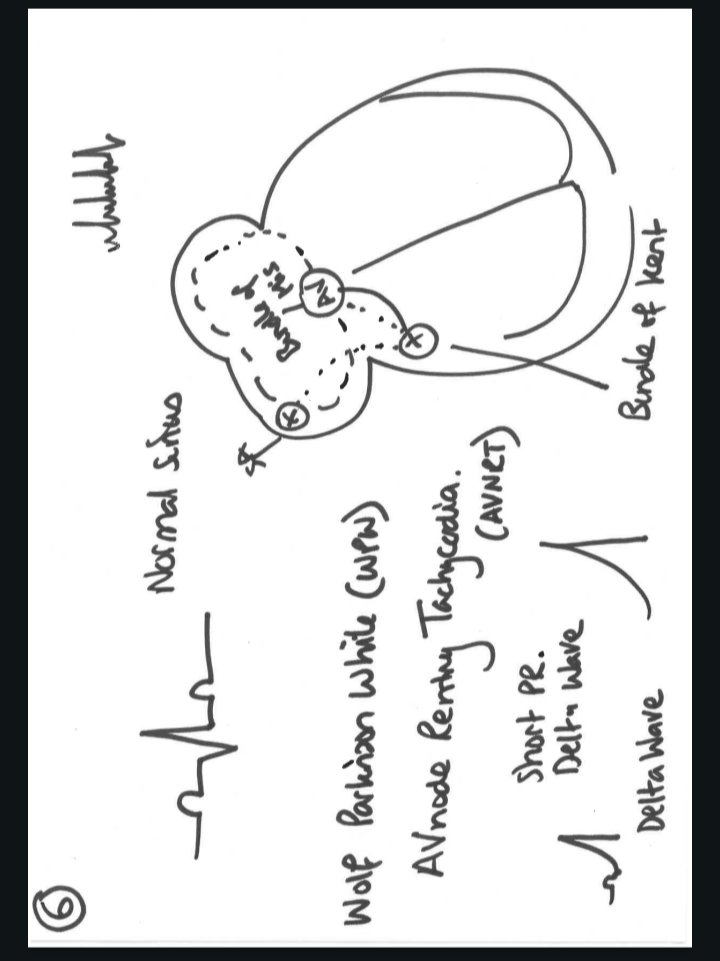 6
Normal sinus
Bundle of
His
AV
X
X
Wolf Parkinson While (WPW)
AVnode Rentry Tachycadia.
(AVNRT)
Short PR.
Delta Wave
Delta Wave
Bundle of Kent